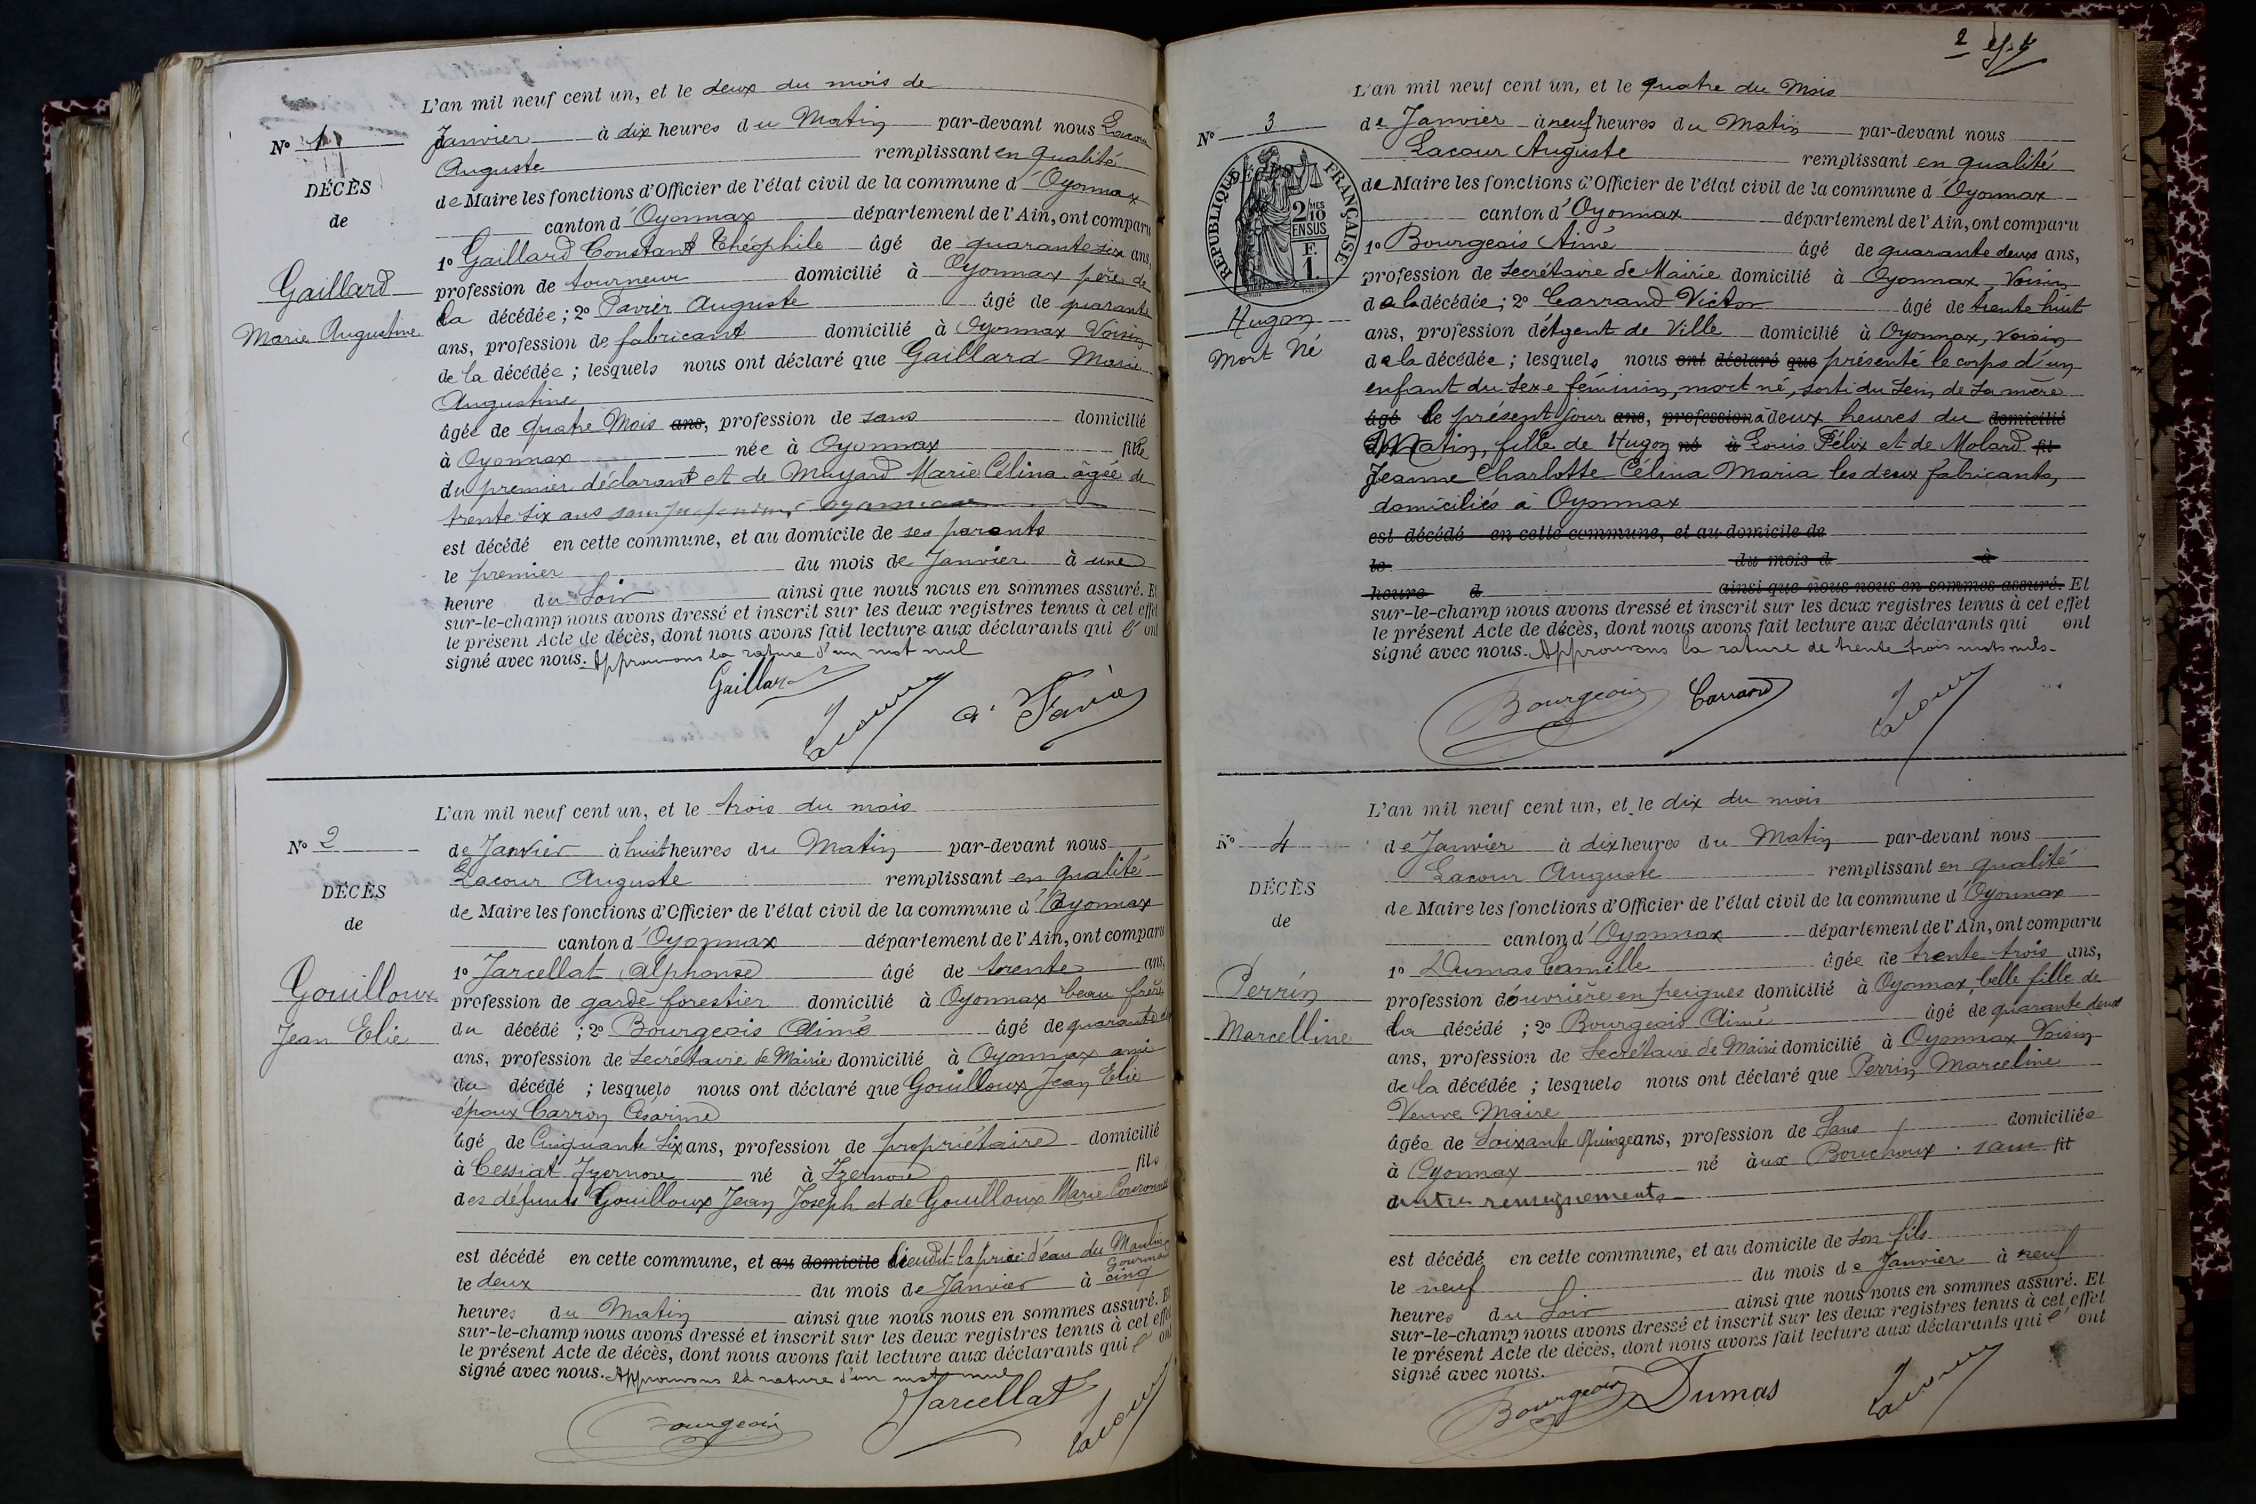 L'an mil neuf cent un, et le deux du mois de
N° 1
Janvier à dix heures du Matin par-devant nous Lacour
Auguste remplissant en qualité
DÉCÈS
de Maire les fonctions d'Officier de l'état civil de la commune d'Oyonnax
de
canton d'Oyonnax département de l'Ain, ont comparu
1° Gaillard Constant Théophile âgé de quarante six ans,
Gaillard
profession de tourneur domicilié à Oyonnax père de
Marie Augustine
la décédée; 2° Pavier Auguste âgé de quarante
ans, profession de fabricant domicilié à Oyonnax Voisin
de la décédée; lesquels nous ont déclaré que Gaillard Marie
Augustine
âgée de quatre Mois ans, profession de sans domicilié
à Oyonnax née à Oyonnax fille
du premier déclarant et de Muyard Marie Célina âgée de
trente six ans sans profession Oyonnax
est décédé en cette commune, et au domicile de ses parents
le premier du mois de Janvier à une
heure du Soir ainsi que nous nous en sommes assuré. Et
sur-le-champ nous avons dressé et inscrit sur les deux registres tenus à cet effet
le présent Acte de décès, dont nous avons fait lecture aux déclarants qui l'ont
signé avec nous. Approuvons la rature d'un mot nul
Gaillard
Lacour
L'an mil neuf cent un, et le trois du mois
N° 2
de Janvier à huit heures du Matin par-devant nous
Lacour Auguste remplissant en qualité
DÉCÈS
de Maire les fonctions d'Officier de l'état civil de la commune d'Oyonnax
de
canton d'Oyonnax département de l'Ain, ont comparu
1° Jarcellat Alphonse âgé de trente ans,
Gouilloux
profession de garde forestier domicilié à Oyonnax beau frère
Jean Elie
du décédé; 2° Bourgeois Aimé âgé de quarante
ans, profession de Secrétaire de Mairie domicilié à Oyonnax ami
du décédé; lesquels nous ont déclaré que Gouilloux Jean Elie
époux Carron Césarine
âgé de Cinquante six ans, profession de propriétaire domicilié
à Cessiat Izernore né à Izernore fils
des défunts Gouilloux Jean Joseph et de Gouilloux Marie
est décédé en cette commune, et au domicile lieudit la prise d'eau du Moulin
Gourmand
le deux du mois de Janvier à cinq
heures du Matin ainsi que nous nous en sommes assuré. Et
sur-le-champ nous avons dressé et inscrit sur les deux registres tenus à cet effet
le présent Acte de décès, dont nous avons fait lecture aux déclarants qui l'ont
signé avec nous. Approuvons la rature d'un mot nul
Bourgeois Jarcellat Lacour
2
L'an mil neuf cent un, et le quatre du Mois
N° 3
de Janvier à neuf heures du Matin par-devant nous
Lacour Auguste remplissant en qualité
RÉPUBLIQUE FRANÇAISE
2 MES 10 EN SUS
F. 1.
de Maire les fonctions d'Officier de l'état civil de la commune d'Oyonnax
canton d'Oyonnax département de l'Ain, ont comparu
1° Bourgeois Aimé âgé de quarante deux ans,
profession de Secrétaire de Mairie domicilié à Oyonnax, Voisin
de la décédée; 2° Carrand Victor âgé de trente huit
Hugon
ans, profession d'Agent de Ville domicilié à Oyonnax, voisin
Mort Né
de la décédée; lesquels nous ont déclaré que présenté le corps d'un
enfant du Sexe féminin, mort né, sorti du Sein de sa mère
âgé le présent jour ans, profession à deux heures du domicilié
Matin, fille de Hugon né à Louis Félix et de Molard fil
Jeanne Charlotte Célina Maria les deux fabricants,
domiciliés à Oyonnax
est décédé en cette commune, et au domicile de
le du mois d à
heure d ainsi que nous nous en sommes assuré. Et
sur-le-champ nous avons dressé et inscrit sur les deux registres tenus à cet effet
le présent Acte de décès, dont nous avons fait lecture aux déclarants qui ont
signé avec nous. Approuvons la rature de trente trois mots nuls.
Bourgeois Carrand Lacour
L'an mil neuf cent un, et le dix du mois
N° 4
de Janvier à dix heures du Matin par-devant nous
Lacour Auguste remplissant en qualité
DÉCÈS
de Maire les fonctions d'Officier de l'état civil de la commune d'Oyonnax
de
canton d'Oyonnax département de l'Ain, ont comparu
1° Dumas Camille âgée de trente trois ans,
Perrin
profession d'ouvrière en peignes domicilié à Oyonnax, belle fille de
Marcelline
la décédé; 2° Bourgeois Aimé âgé de quarante deux
ans, profession de Secrétaire de Mairie domicilié à Oyonnax Voisin
de la décédée; lesquels nous ont déclaré que Perrin Marceline
Veuve Maire
âgée de Soixante Quinze ans, profession de Sans domiciliée
à Oyonnax né aux Bouchoux. sans fil
autres renseignements
est décédé en cette commune, et au domicile de son fils
le neuf du mois de Janvier à neuf
heures du Soir ainsi que nous nous en sommes assuré. Et
sur-le-champ nous avons dressé et inscrit sur les deux registres tenus à cet effet
le présent Acte de décès, dont nous avons fait lecture aux déclarants qui l'ont
signé avec nous.
Bourgeois Dumas Lacour